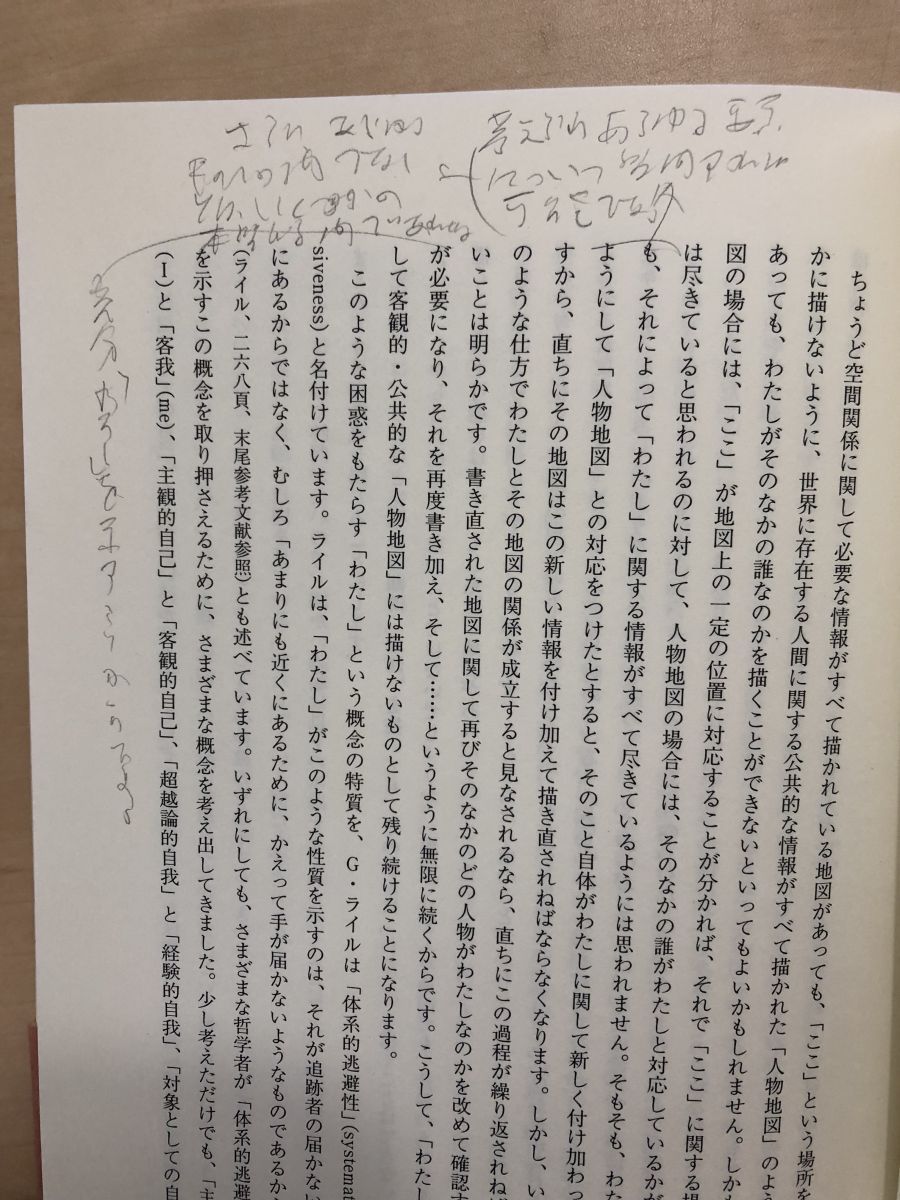 ちょうど空間関係に関して必要な情報がすべて描かれている地図があっても、「ここ」という場所を
かに描けないように、世界に存在する人間に関する公共的な情報がすべて描かれた「人物地図」のよう
あっても、わたしがそのなかの誰なのかを描くことができないといってもよいかもしれません。しかも
図の場合には、「ここ」が地図上の一定の位置に対応することが分かれば、それで「ここ」に関する場
は尽きていると思われるのに対して、人物地図の場合には、そのなかの誰がわたしと対応しているかが
も、それによって「わたし」に関する情報がすべて尽きているようには思われません。そもそも、わた
ようにして「人物地図」との対応をつけたとすると、そのこと自体がわたしに関して新しく付け加わっ
すから、直ちにその地図はこの新しい情報を付け加えて描き直されねばならなくなります。しかし、い
のような仕方でわたしとその地図の関係が成立すると見なされるなら、直ちにこの過程が繰り返されね
いことは明らかです。書き直された地図に関して再びそのなかのどの人物がわたしなのかを改めて確認す
が必要になり、それを再度書き加え、そして……というように無限に続くからです。こうして、「わたし
して客観的・公共的な「人物地図」には描けないものとして残り続けることになります。
このような困惑をもたらす「わたし」という概念の特質を、G・ライルは「体系的逃避性」(systemat
siveness)と名付けています。ライルは、「わたし」がこのような性質を示すのは、それが追跡者の届かない
にあるからではなく、むしろ「あまりにも近くにあるために、かえって手が届かないようなものであるか
(ライル、二六八頁、末尾参考文献参照)とも述べています。いずれにしても、さまざまな哲学者が「体系的逃避
を示すこの概念を取り押さえるために、さまざまな概念を考え出してきました。少し考えただけでも、「主
(I)と「客我」(me)、「主観的自己」と「客観的自己」、「超越論的自我」と「経験的自我」、「対象としての自